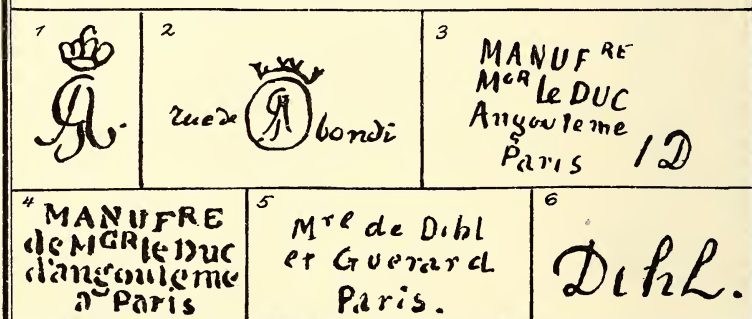 1
GA
2
rue de GA bondi
3
MANUFRE
MGR le DUC
Angouleme
Paris 1D
4
MANUFRE
de MGR le Duc
d'angouleme
a Paris
5
Mre de Dihl
et Guerard
Paris.
6
Dihl.